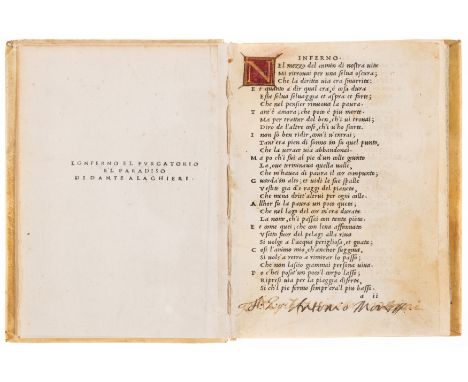 LO'NFERNO E'L PVRGATORIO
E'L PARADISO
DI DANTE ALAGHIERI.
INFERNO.
NEl mezzo del camin di nostra uita
Mi ritrouai per una selua oscura;
Che la diritta uia era smarrita:
E t quanto a dir qual era, è cosa dura
Esta selua seluaggia et aspra et forte;
Che nel pensier rinuoua la paura.
T ant'è amara; che poco è piu morte.
Ma per trattar del ben, ch'i ui trouai;
Diro de l'altre cose, ch'i u'ho scorte.
I non so ben ridir, com'i u'entrai;
Tant'era pien di sonno in su quel punto,
Che la uerace uia abbandonai.
M a po ch'i fui al pie d'un colle giunto
La, oue terminaua quella ualle,
Che m'hauea di paura il cor compunto;
G uardai in alto; et uidi le sue spalle
Vestite gia de raggi del pianeta,
Che mena dritt'altrui per ogni calle.
A llhor fu la paura un poco queta;
Che nel lago del cor m'era durata
La notte, ch'i passai con tanta pieta.
E t come quei, che con lena affannata
Vscito fuor del pelago a la riua
Si uolge a l'acqua perigliosa, et guata;
C osi l'animo mio, ch'anchor fuggiua,
Si uols'a retro a rimirar lo passo;
Che non lascio giamai persona uiua.
P o c'hei posat'un poco'l corpo lasso;
Ripresi uia per la piaggia diserta,
Si ch'l pie fermo sempr'era'l piu basso.
a ii
Antonio